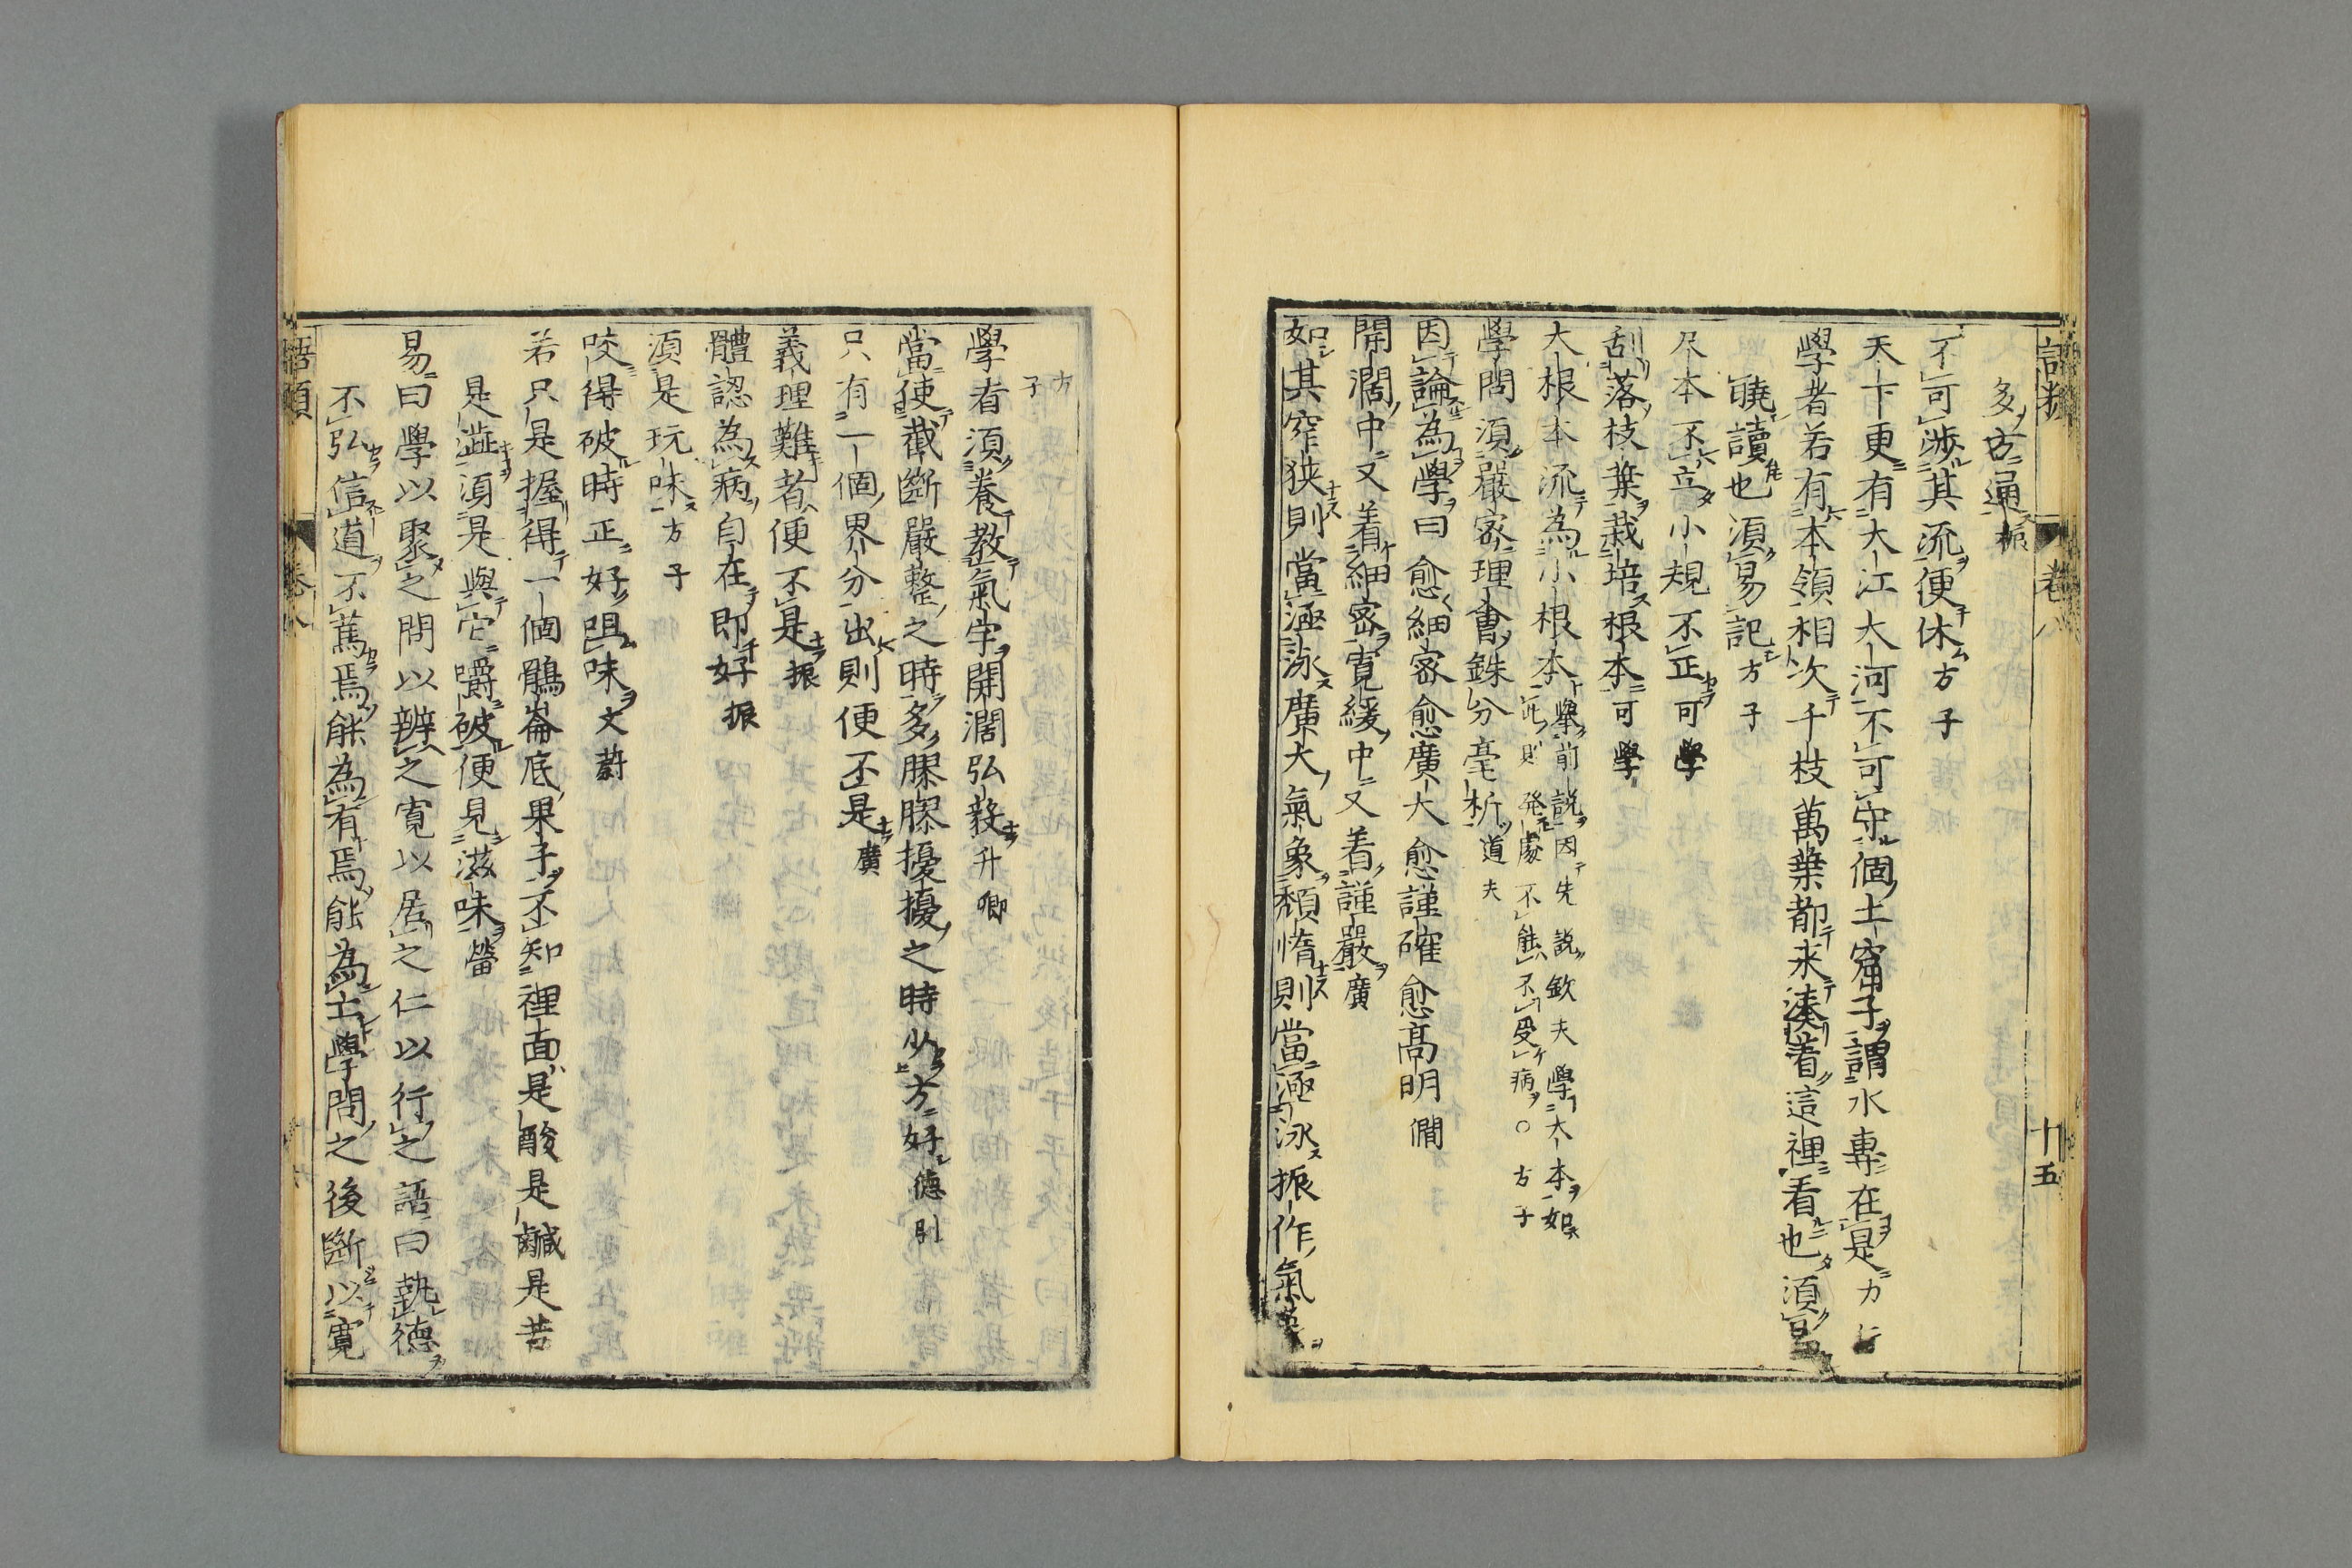 語類 卷八 十五
多方通振
不可渉其流便休方子
天下更有大江大河不可守個土窟子謂水専在是力行
學者若有本領相次千枝萬葉都來湊着這裡看也須
暁讀也須易記方子
尺本不立小規不正可學
刮落枝葉栽培根本可學
大根本流為小根本
舉前説因先説欽夫學大本如
此則発處不能不受病〇方子
學問須嚴宻理會銖分毫析道夫
因論為學曰愈細宻愈廣大愈謹確愈高明僴
開濶中又着細宻寛緩中又着謹嚴廣
如其窄狭則當涵泳廣大氣象頽惰則當涵泳振作氣
方
子
學者須養教氣宇開濶弘毅升卿
當使截斷嚴整之時多膠膠擾擾之時少方好德明
只有一個界分出則便不是廣
義理難者便不是振
體認為病自在即好振
須是玩味方子
咬得破時正好咀味文蔚
若只是握得一個鶻崙底果子不知裡面是酸是鹹是苦
是澁須是與它嚼破便見滋味㽦
易曰學以聚之問以辨之寛以居之仁以行之語曰執德
不弘信道不篤焉能為有焉能為亡學問之後斷以寛
語類 卷八